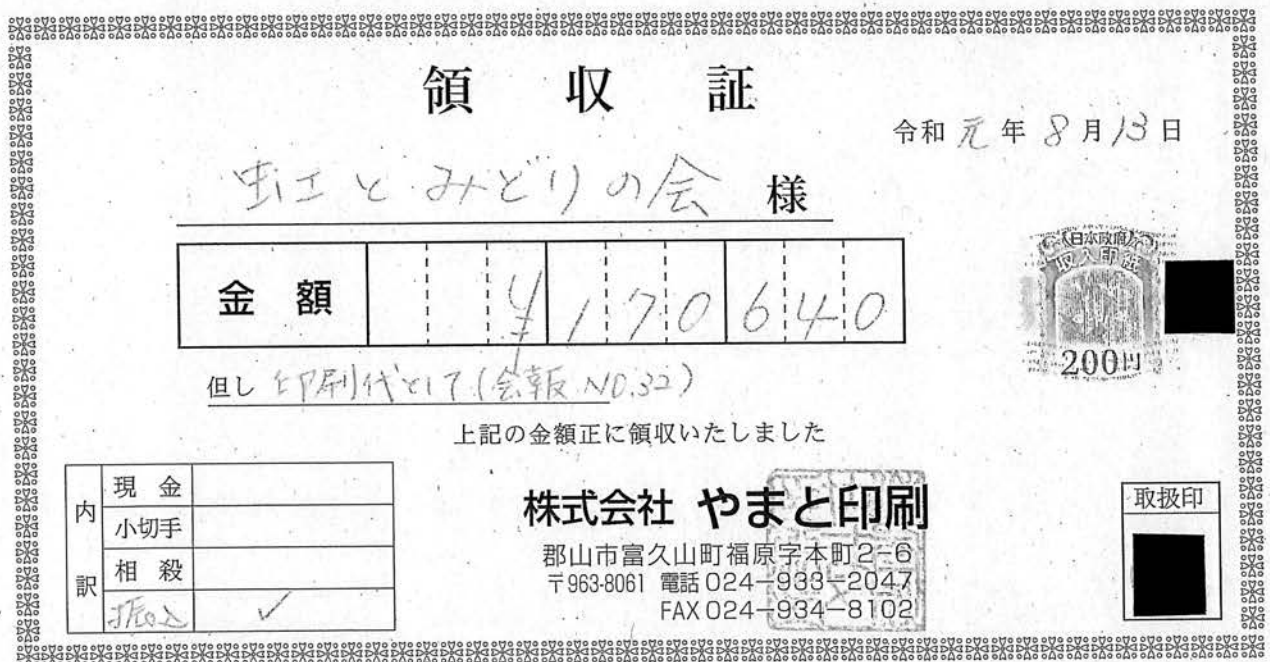 領収証
令和元年8月13日
虹とみどりの会 様
金額 ¥170640
但し 印刷代として(会報 NO.32)
上記の金額正に領収いたしました
日本政府
収入印紙
200円
内訳
現金
小切手
相殺
振込 ✓
株式会社 やまと印刷
郡山市富久山町福原字本町2-6
〒963-8061 電話 024-933-2047
FAX 024-934-8102
取扱印